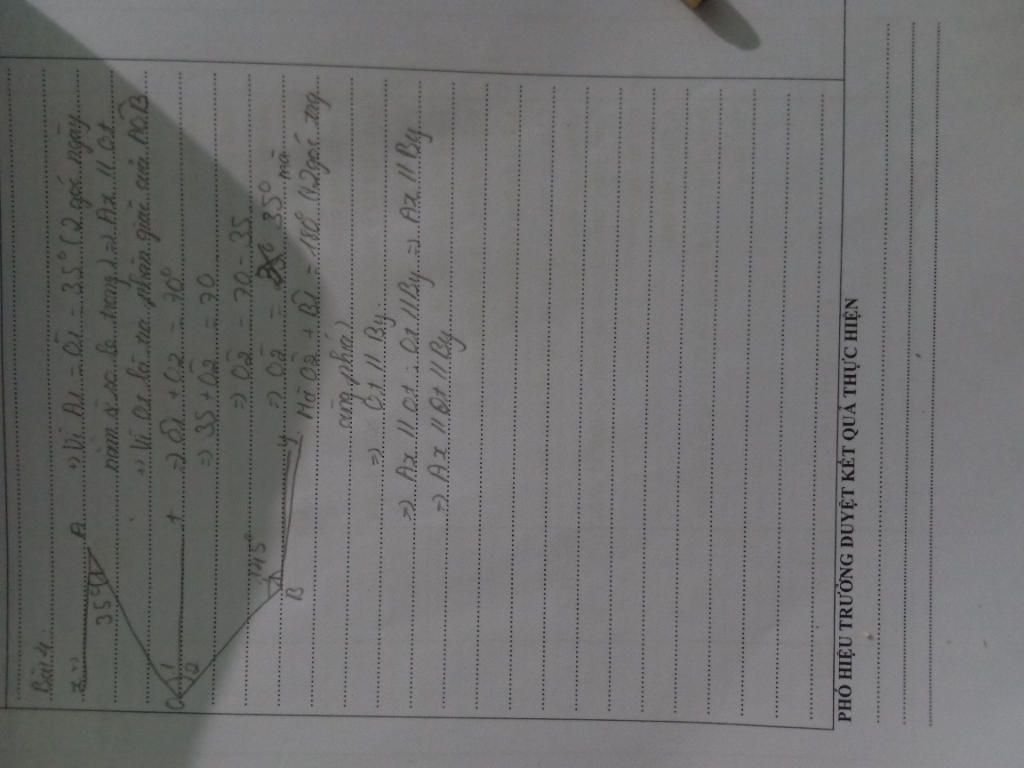 Bài 4:
x
35°
A
1
2
O
t
145°
B
y
→ Vì A1 = O1 = 35° (2 góc ngay
nằm ở so le trong) => Ax // Ot
→ Vì Ot là tia phân giác của AOB
=> O2 + O2 = 70°
=> 35 + O2 = 70
=> O2 = 70 - 35
=> O2 = 35°
Mà O2 + B1 = 180 (2 góc trg
cùng phía)
=> Ot // By
=> Ax // Ot ; Ot // By => Ax // By
=> Ax // Ot // By
PHÓ HIỆU TRƯỞNG DUYỆT KẾT QUẢ THỰC HIỆN